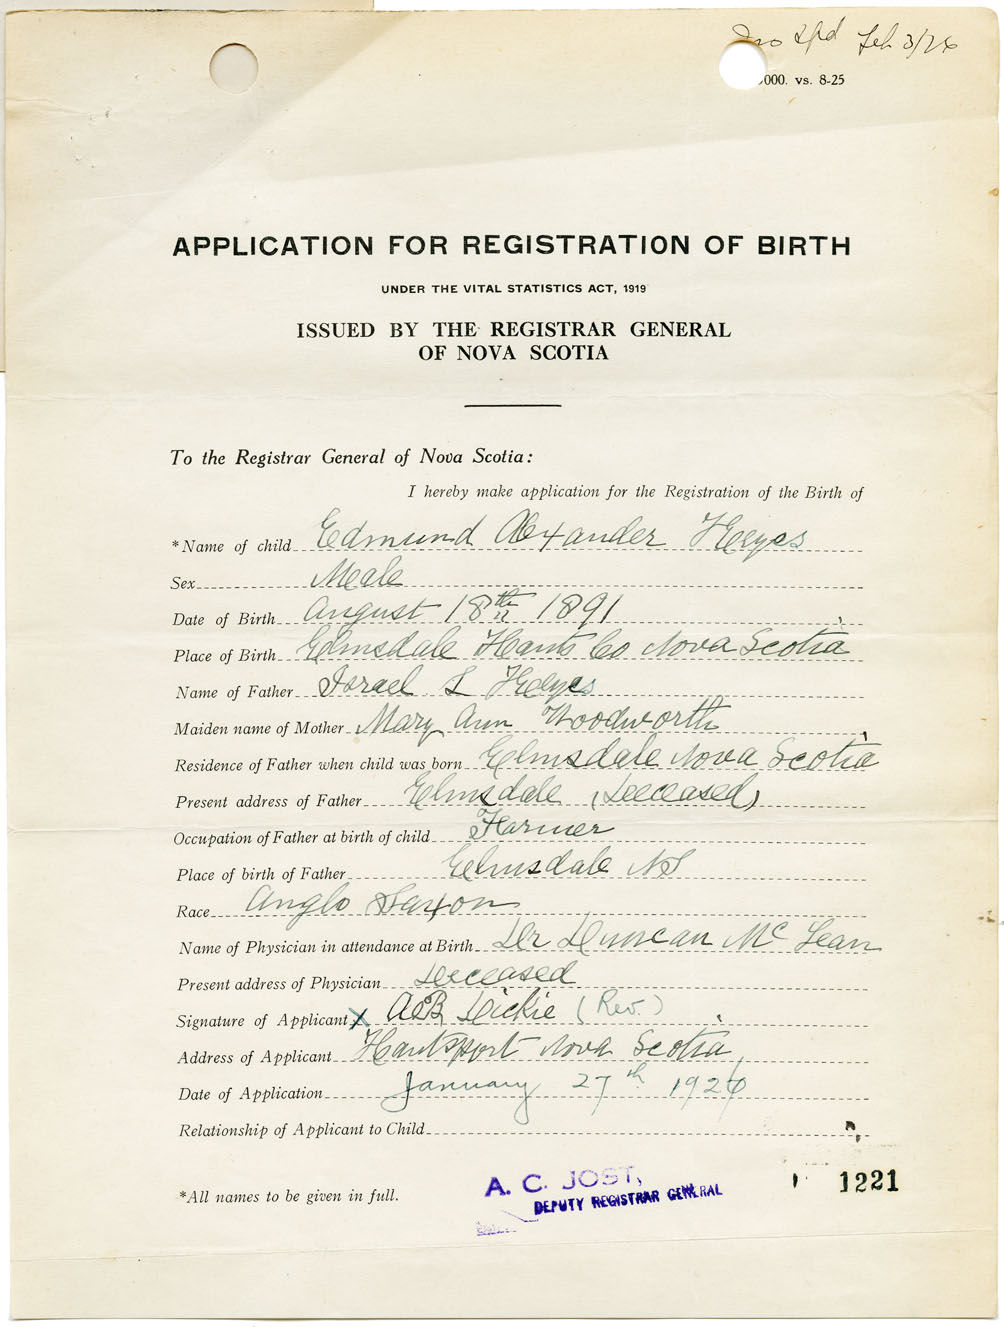 Feb 3/26
000. vs. 8-25
APPLICATION FOR REGISTRATION OF BIRTH
UNDER THE VITAL STATISTICS ACT, 1919
ISSUED BY THE REGISTRAR GENERAL
OF NOVA SCOTIA
To the Registrar General of Nova Scotia:
I hereby make application for the Registration of the Birth of
*Name of child Edmund Alexander Keyes
Sex Meale
Date of Birth August 18th 1891
Place of Birth Elmsdale Hants Co Nova Scotia
Name of Father Israel L Keyes
Maiden name of Mother Mary Ann Woodworth
Residence of Father when child was born Elmsdale Nova Scotia
Present address of Father Elmsdale (Deceased)
Occupation of Father at birth of child Farmer
Place of birth of Father Elmsdale NS
Race Anglo Saxon
Name of Physician in attendance at Birth Dr Duncan McLean
Present address of Physician Deceased
Signature of Applicant X A B Dickie (Rev.)
Address of Applicant Hantsport Nova Scotia
Date of Application January 27th 1926
Relationship of Applicant to Child
1221
*All names to be given in full.
A. C. JOST,
DEPUTY REGISTRAR GENERAL